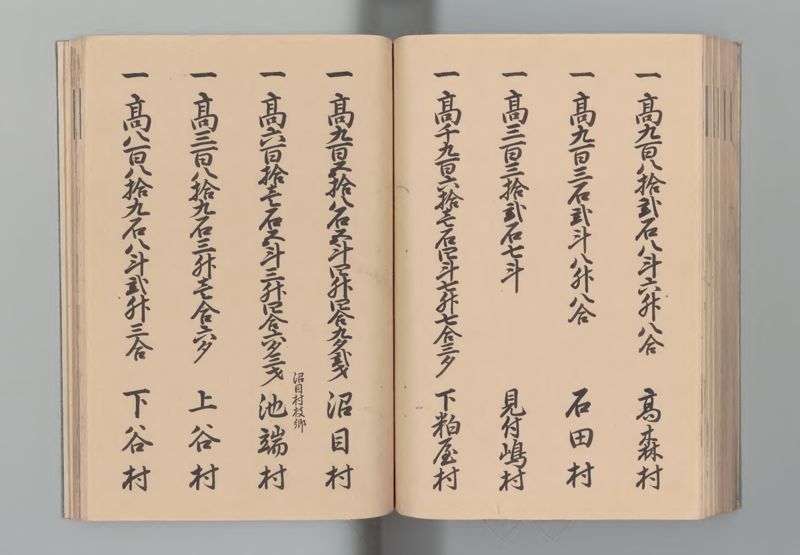 一 高九百八拾弐石八斗六升八合 高森村
一 高九百三石弐斗八升八合 石田村
一 高三百三拾弐石七斗 見付嶋村
一 高千九百六拾壱石四斗七升七合三夕 下粕屋村
一 高九百五拾八石五斗四升四合九夕弐才 沼目村
沼目村枝郷
一 高六百拾壱石五斗三升四合六夕三才 池端村
一 高三百八拾九石三升壱合六夕 上谷村
一 高八百八拾九石八斗弐升三合 下谷村